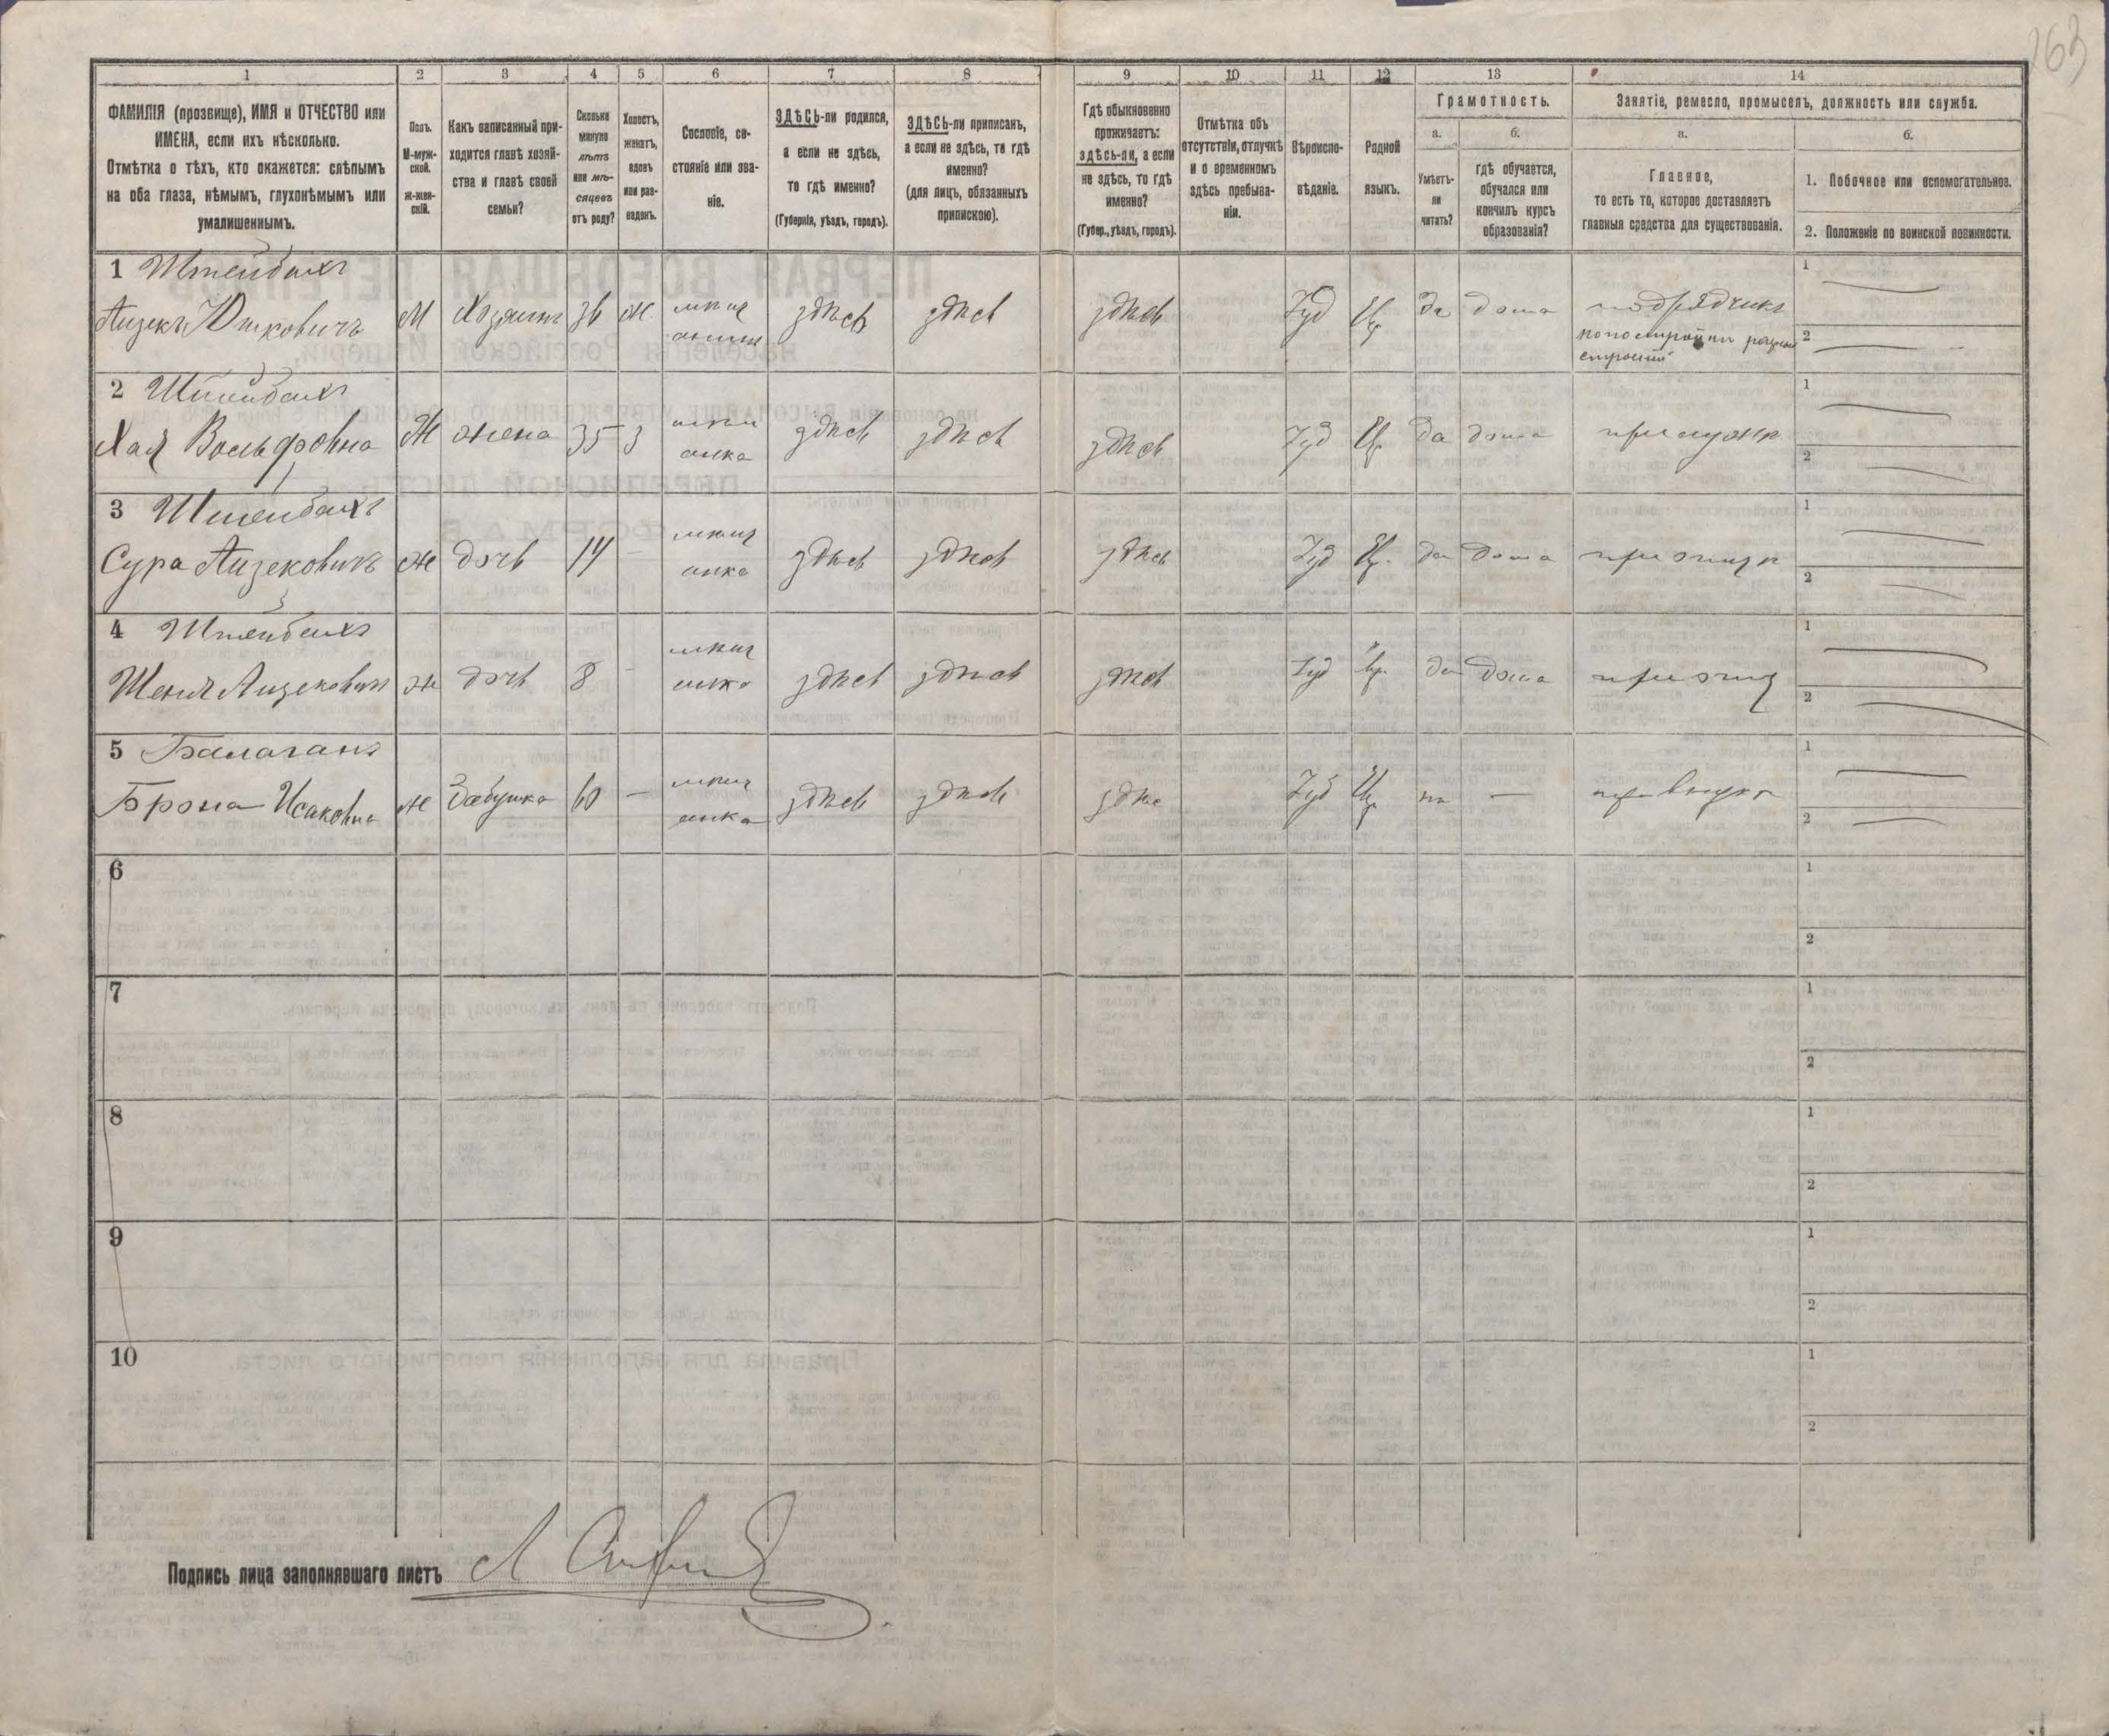 263
1 2 3 4 5 6 7 8 9 10 11 12 13 14
ФАМИЛІЯ (прозвище), ИМЯ и ОТЧЕСТВО или
ИМЕНА, если ихъ нѣсколько.
Отмѣтка о тѣхъ, кто окажется: слѣпымъ
на оба глаза, нѣмымъ, глухонѣмымъ или
умалишеннымъ.
Полъ.
М-муж-
ской.
Ж-жен-
скій.
Какъ записанный при-
ходится главѣ хозяй-
ства и главѣ своей
семьи?
Сколько
минуло
лѣтъ
или мѣ-
сяцевъ
отъ роду?
Холостъ,
женатъ,
вдовъ
или раз-
веденъ.
Сословіе, со-
стояніе или зва-
ніе.
ЗДѢСЬ-ли родился,
а если не здѣсь,
то гдѣ именно?
(Губернія, уѣздъ, городъ).
ЗДѢСЬ-ли приписанъ,
а если не здѣсь, то гдѣ
именно?
(для лицъ, обязанныхъ
припискою).
Гдѣ обыкновенно
проживаетъ:
здѣсь-ли, а если
не здѣсь, то гдѣ
именно?
(Губер., уѣздъ, городъ).
Отмѣтка объ
отсутствіи, отлучкѣ
и о временномъ
здѣсь пребыва-
ніи.
Вѣроиспо-
вѣданіе.
Родной
языкъ.
Грамотность.
а.
Умѣетъ-
ли
читать?
б.
гдѣ обучается,
обучался или
кончилъ курсъ
образованія?
Занятіе, ремесло, промыселъ, должность или служба.
а.
Главное,
то есть то, которое доставляетъ
главныя средства для существованія.
б.
1. Побочное или вспомогательное.
2. Положеніе по воинской повинности.
1 Штейбахъ
Айзекъ М Хозяинъ 36 Ж здѣсь здѣсь здѣсь Іуд Ев да дома подрядчикъ
1
2
2 Штейбахъ
Хая Вольфовна Ж жена 35 З здѣсь здѣсь здѣсь Іуд Ев да дома при мужѣ
1
2
3 Штейбахъ
Сура Айзековичъ ж дочь 14 здѣсь здѣсь здѣсь Іуд Ев да дома при отцѣ
1
2
4 Штейбахъ
Шейля Айзековичъ ж дочь 8 здѣсь здѣсь здѣсь Іуд Ев да дома при отц
1
2
5 Балаганъ
Брона Исаковна ж бабушка 60 — здѣсь здѣсь здѣс Іуд Ев нѣ — при внукѣ
1
2
6
1
2
7
1
2
8
1
2
9
1
2
10
1
2
Подпись лица заполнявшаго листъ